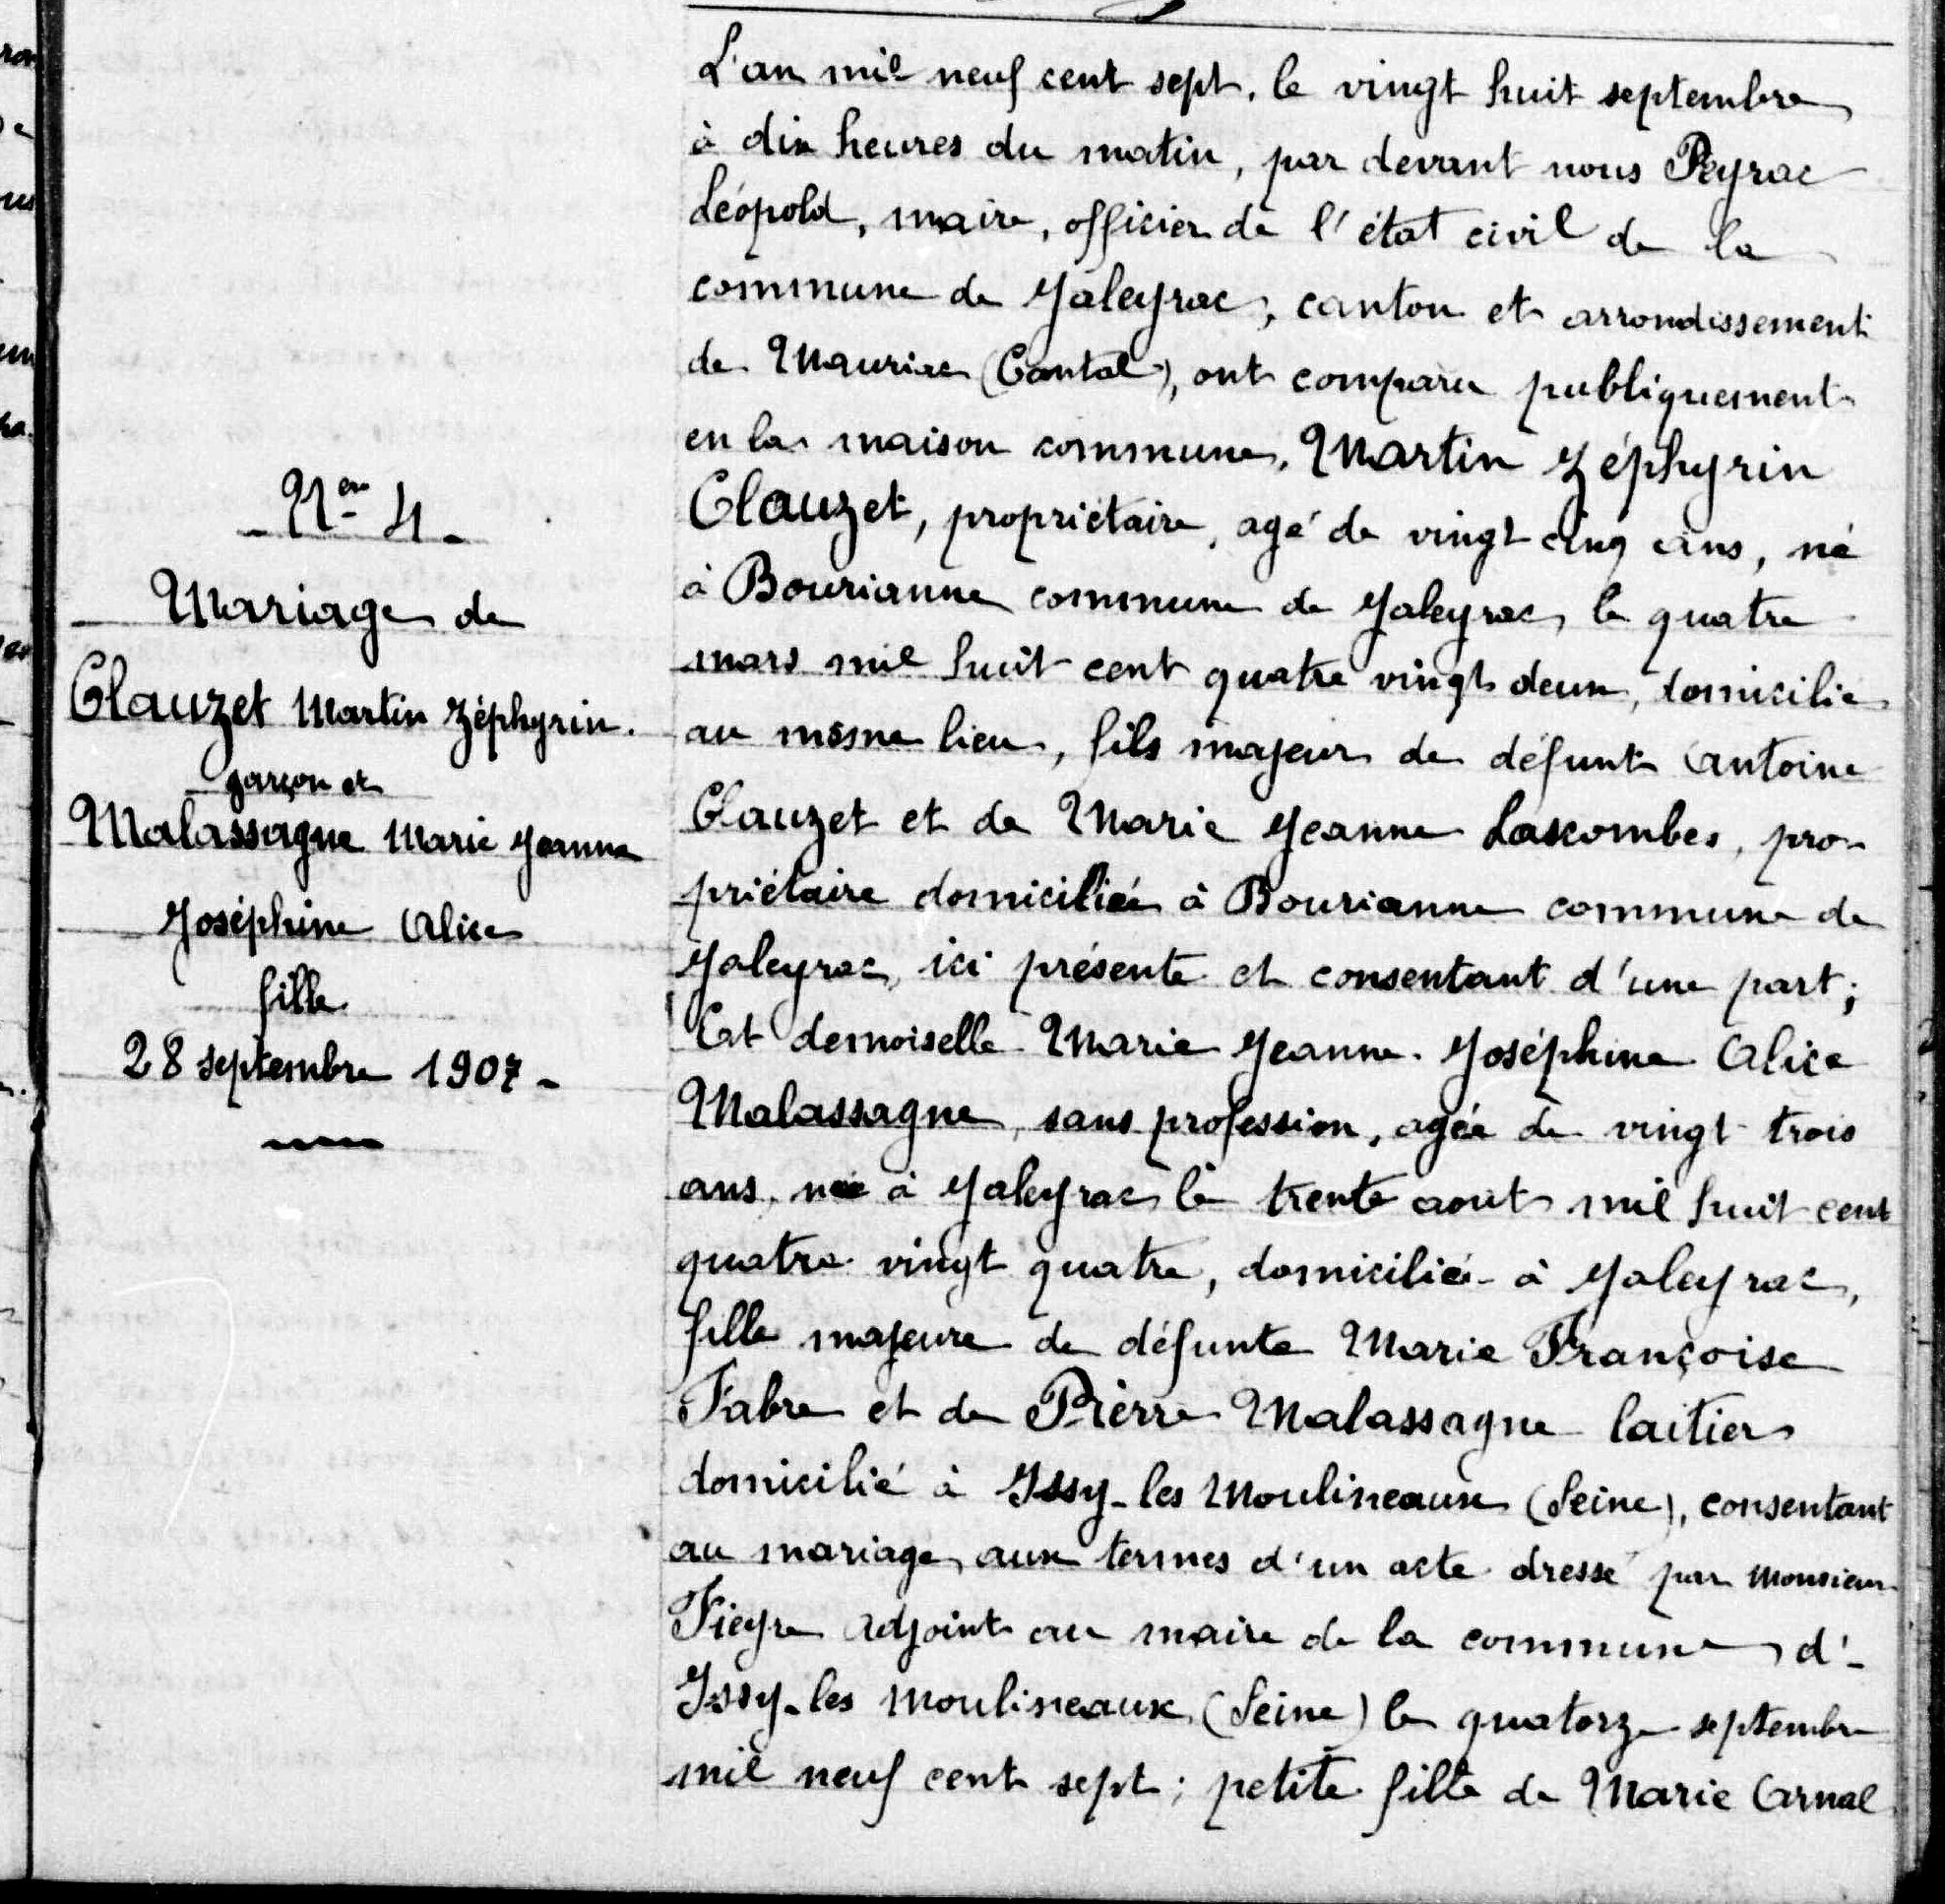 N° 4
Mariage de
Clauzet Martin Zéphyrin
garçon et
Malassagne Marie Jeanne
Joséphine Alice
fille
28 septembre 1907
L'an mil neuf cent sept, le vingt huit septembre
à dix heures du matin, par devant nous Peyrac
Léopold, maire, officier de l'état civil de la
commune de Jaleyrac, canton et arrondissement
de Mauriac (Cantal), ont comparu publiquement
en la maison commune, Martin Zéphyrin
Clauzet, propriétaire, agé de vingt cinq ans, né
à Bourianne commune de Jaleyrac, le quatre
mars mil huit cent quatre vingt deux, domicilié
au même lieu, fils majeur de défunt Antoine
Clauzet et de Marie Jeanne Lascombes, pro-
priétaire domiciliée à Bourianne commune de
Jaleyrac, ici présente et consentant d'une part;
Et demoiselle Marie Jeanne Joséphine Alice
Malassagne, sans profession, agée de vingt trois
ans, née à Jaleyrac le trente août mil huit cent
quatre vingt quatre, domiciliée à Jaleyrac,
fille majeure de défunte Marie Françoise
Fabre et de Pierre Malassagne laitier
domicilié à Issy-les Moulineaux (Seine), consentant
au mariage, aux termes d'un acte dressé par Monsieur
Fieyre adjoint au maire de la commune d'-
Issy-les Moulineaux (Seine) le quatorze septembre
mil neuf cent sept; petite fille de Marie